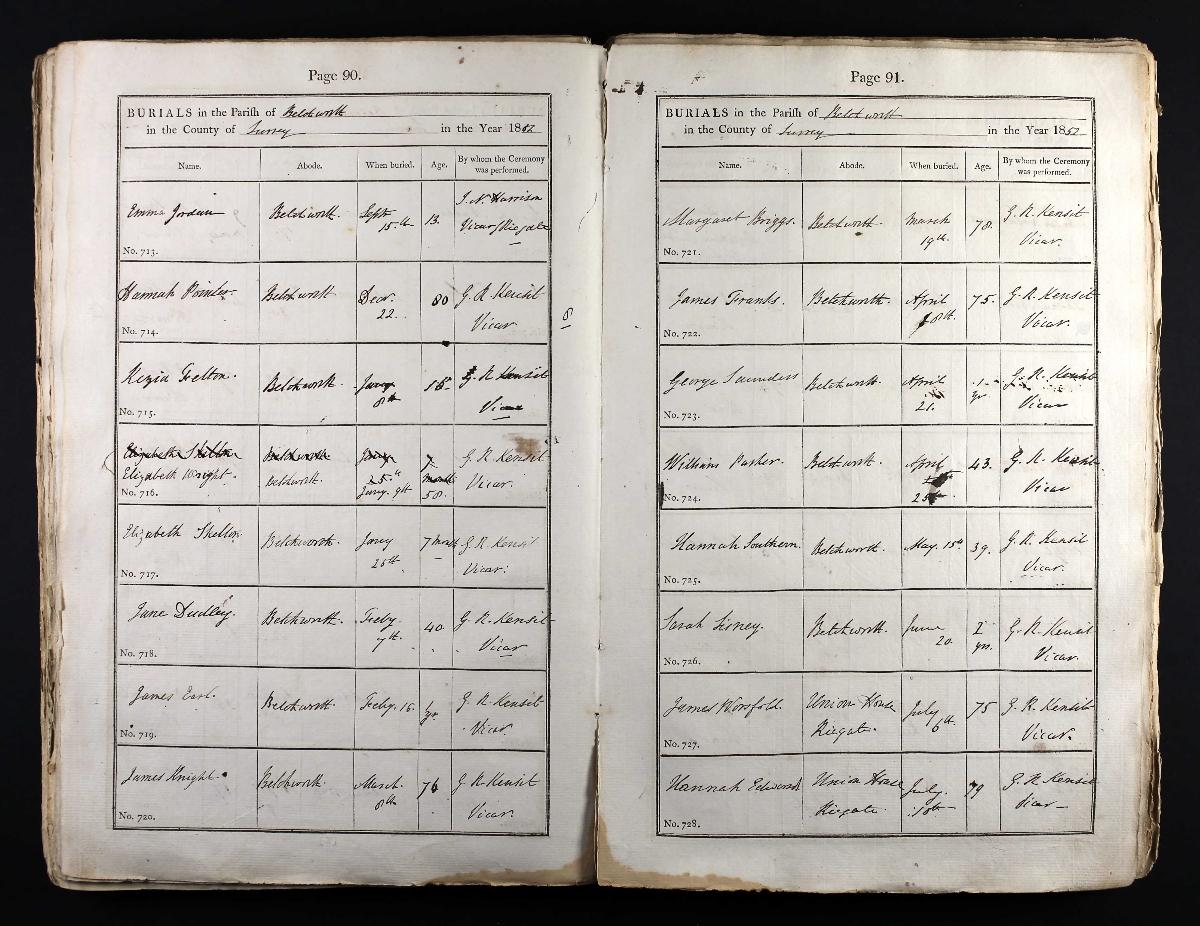 Page 90.
BURIALS in the Parish of Betchworth
in the County of Surrey in the Year 1852
Name. Abode. When buried. Age. By whom the Ceremony was performed.
Emma Jordan Betchworth. Septr 15.th 13. J. N. Harrison Vicar of Reigate
No. 713.
Hannah Betchworth Decr. 22. 80 G. R. Kensit Vicar
No. 714.
Kezia Felton. Betchworth. Jany 8th G. R. Kensit Vicar
No. 715.
Elizabeth Skelton Betchworth Jany 25.th 7 months G. R. Kensit
Elizabeth Wright. Betchworth. Jany. 9th 58. Vicar.
No. 716.
Elizabeth Skelton. Betchworth. Jany 25th 7 months G. R. Kensit Vicar.
No. 717.
Jane Dudley. Betchworth. Feby. 7th. 40. G. R. Kensit Vicar
No. 718.
James Earl. Betchworth. Feby. 16. yr. G. R. Kensit Vicar.
No. 719.
James Knight. Betchworth. March. 8th 76 G. R. Kensit Vicar.
No. 720.
8
Page 91.
BURIALS in the Parish of Betchworth
in the County of Surrey in the Year 1852
Name. Abode. When buried. Age. By whom the Ceremony was performed.
Margaret Briggs. Betchworth. March 19th. 78. G. R. Kensit Vicar.
No. 721.
James Franks. Betchworth. April 8th. 75. G. R. Kensit Vicar.
No. 722.
George Saunders Betchworth. April 21. 1 yr G. R. Kensit Vicar
No. 723.
William Betchworth. April 25th 43. G. R. Kensit Vicar
No. 724.
Hannah Southern. Betchworth. May. 15th 39. G. R. Kensit Vicar.
No. 725.
Sarah Betchworth. June 20. 2 yrs. G. R. Kensit Vicar.
No. 726.
James Worsfold. Union House Reigate. July 6th. 75 G. R. Kensit Vicar.
No. 727.
Hannah Edwards Union House Reigate July. 18th 79 G. R. Kensit Vicar
No. 728.